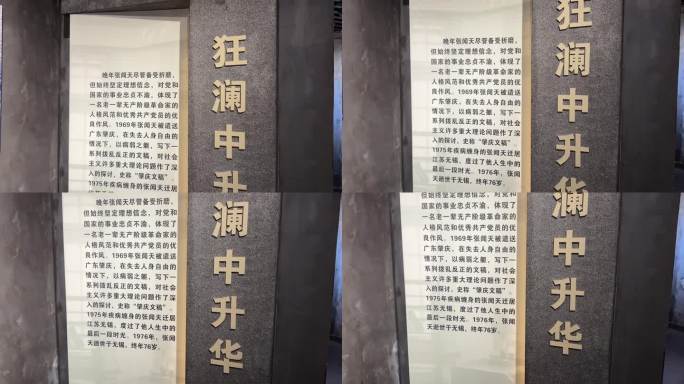 狂澜中升
晚年张闻天尽管备受折磨，
但始终坚定理想信念，对党和
国家的事业忠贞不渝，体现了
一名老一辈无产阶级革命家的
人格风范和优秀共产党员的优
良作风。1969年张闻天被遣送
广东肇庆，在失去人身自由的
情况下，以病弱之躯，写下一
系列拨乱反正的文稿，对社会
主义许多重大理论问题作了深
入的探讨，史称“肇庆文稿”。
1975年疾病缠身的张闻天迁居
狂澜中升华
晚年张闻天尽管备受折磨，
但始终坚定理想信念，对党和
国家的事业忠贞不渝，体现了
一名老一辈无产阶级革命家的
人格风范和优秀共产党员的优
良作风。1969年张闻天被遣送
广东肇庆，在失去人身自由的
情况下，以病弱之躯，写下一
系列拨乱反正的文稿，对社会
主义许多重大理论问题作了深
入的探讨，史称“肇庆文稿”。
1975年疾病缠身的张闻天迁居
澜中升华
晚年张闻天尽管备受折磨，
但始终坚定理想信念，对党和
国家的事业忠贞不渝，体现了
一名老一辈无产阶级革命家的
人格风范和优秀共产党员的优
良作风。1969年张闻天被遣送
广东肇庆，在失去人身自由的
情况下，以病弱之躯，写下一
系列拨乱反正的文稿，对社会
主义许多重大理论问题作了深
入的探讨，史称“肇庆文稿”。
1975年疾病缠身的张闻天迁居
江苏无锡，度过了他人生中的
最后一段时光。1976年，张闻
天逝世于无锡，终年76岁。
澜中升华
但始终坚定理想信念，对党和
国家的事业忠贞不渝，体现了
一名老一辈无产阶级革命家的
人格风范和优秀共产党员的优
良作风。1969年张闻天被遣送
广东肇庆，在失去人身自由的
情况下，以病弱之躯，写下一
系列拨乱反正的文稿，对社会
主义许多重大理论问题作了深
入的探讨，史称“肇庆文稿”。
1975年疾病缠身的张闻天迁居
江苏无锡，度过了他人生中的
最后一段时光。1976年，张闻
天逝世于无锡，终年76岁。